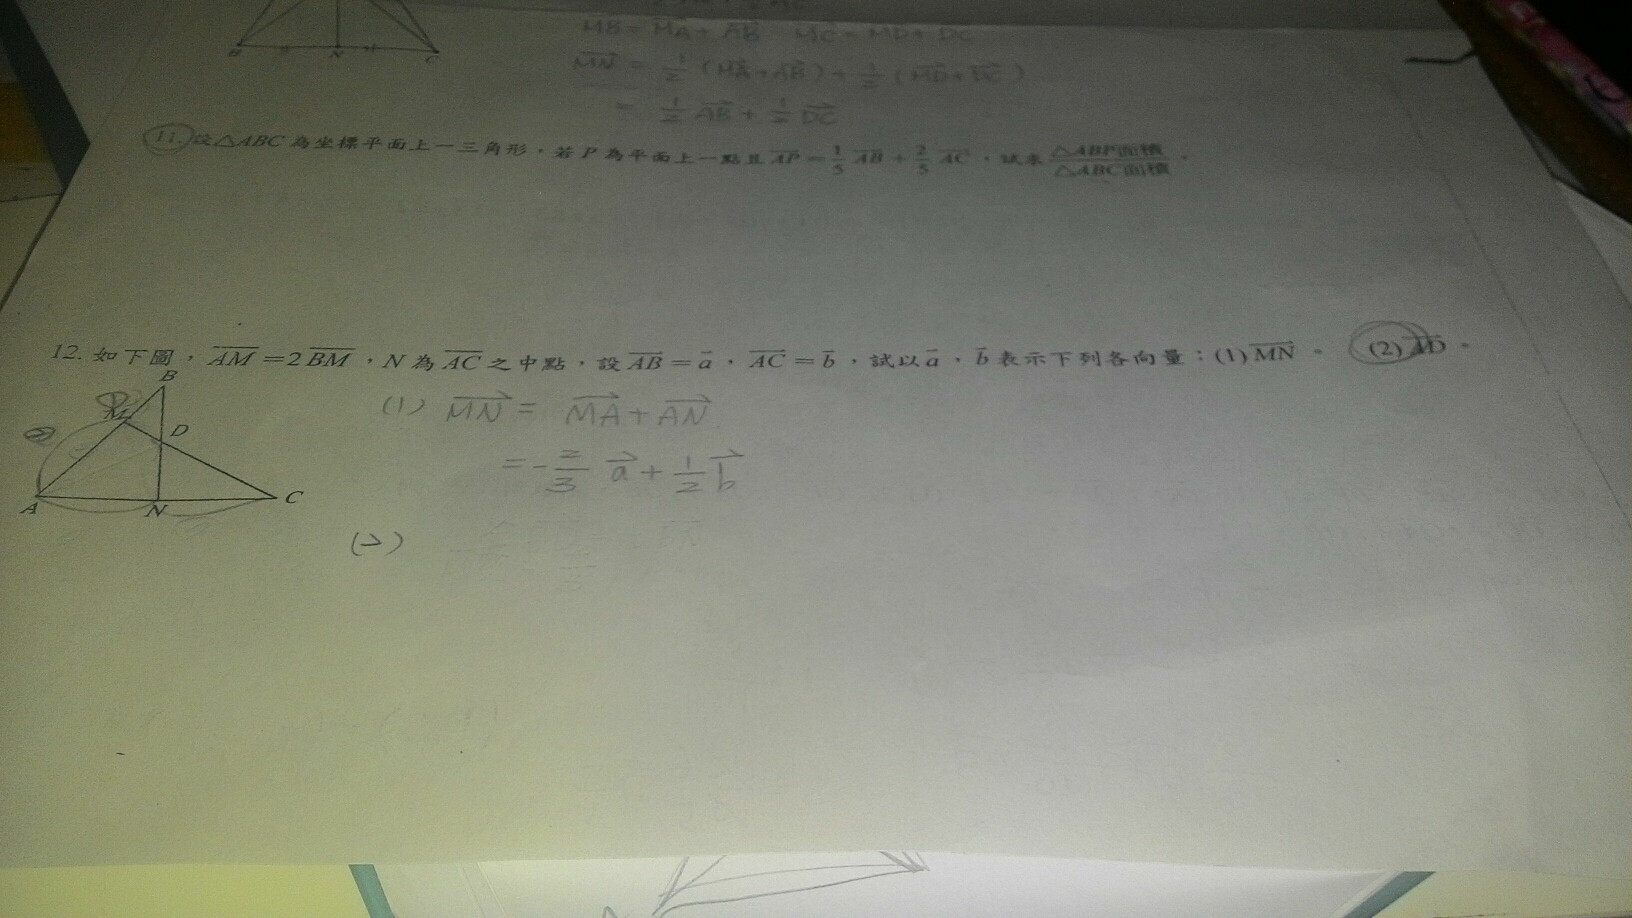 B N C
MB = MA + AB MC = MD + DC
MN = 1/2 (MA + AB) + 1/2 (MD + DC)
= 1/2 AB + 1/2 DC
11. 設△ABC 為坐標平面上一三角形，若 P 為平面上一點且 AP = 1/5 AB + 2/5 AC，試求 △ABP面積/△ABC面積。
12. 如下圖，AM = 2 BM，N 為 AC 之中點，設 AB = a，AC = b，試以 a，b 表示下列各向量：(1) MN。 (2) AD。
B
M
D
A N C
(1) MN = MA + AN
= -2/3 a + 1/2 b
(2)